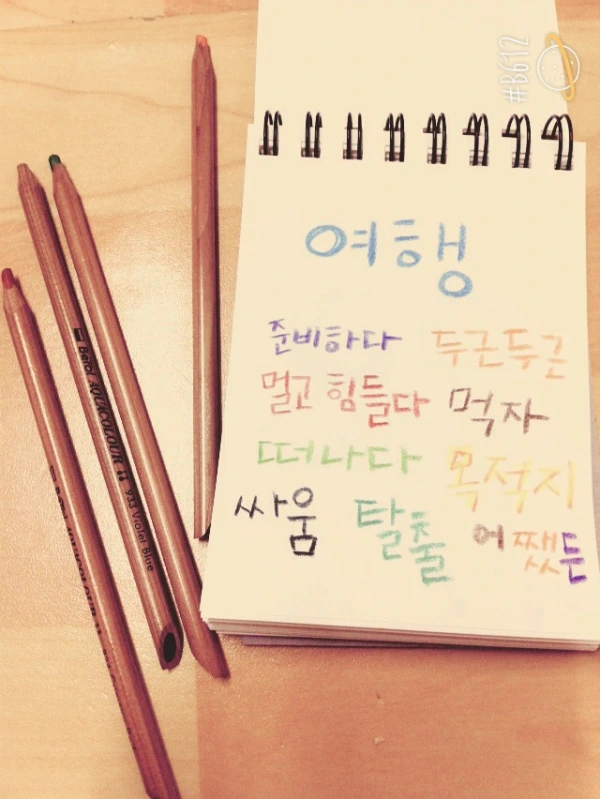 #B612
여행
준비하다 두근두근
멀고 힘들다 먹자
떠나다 목적지
싸움 탈출 어쨌든
Berol AQUACOLOUR 11 933 Violet Blue